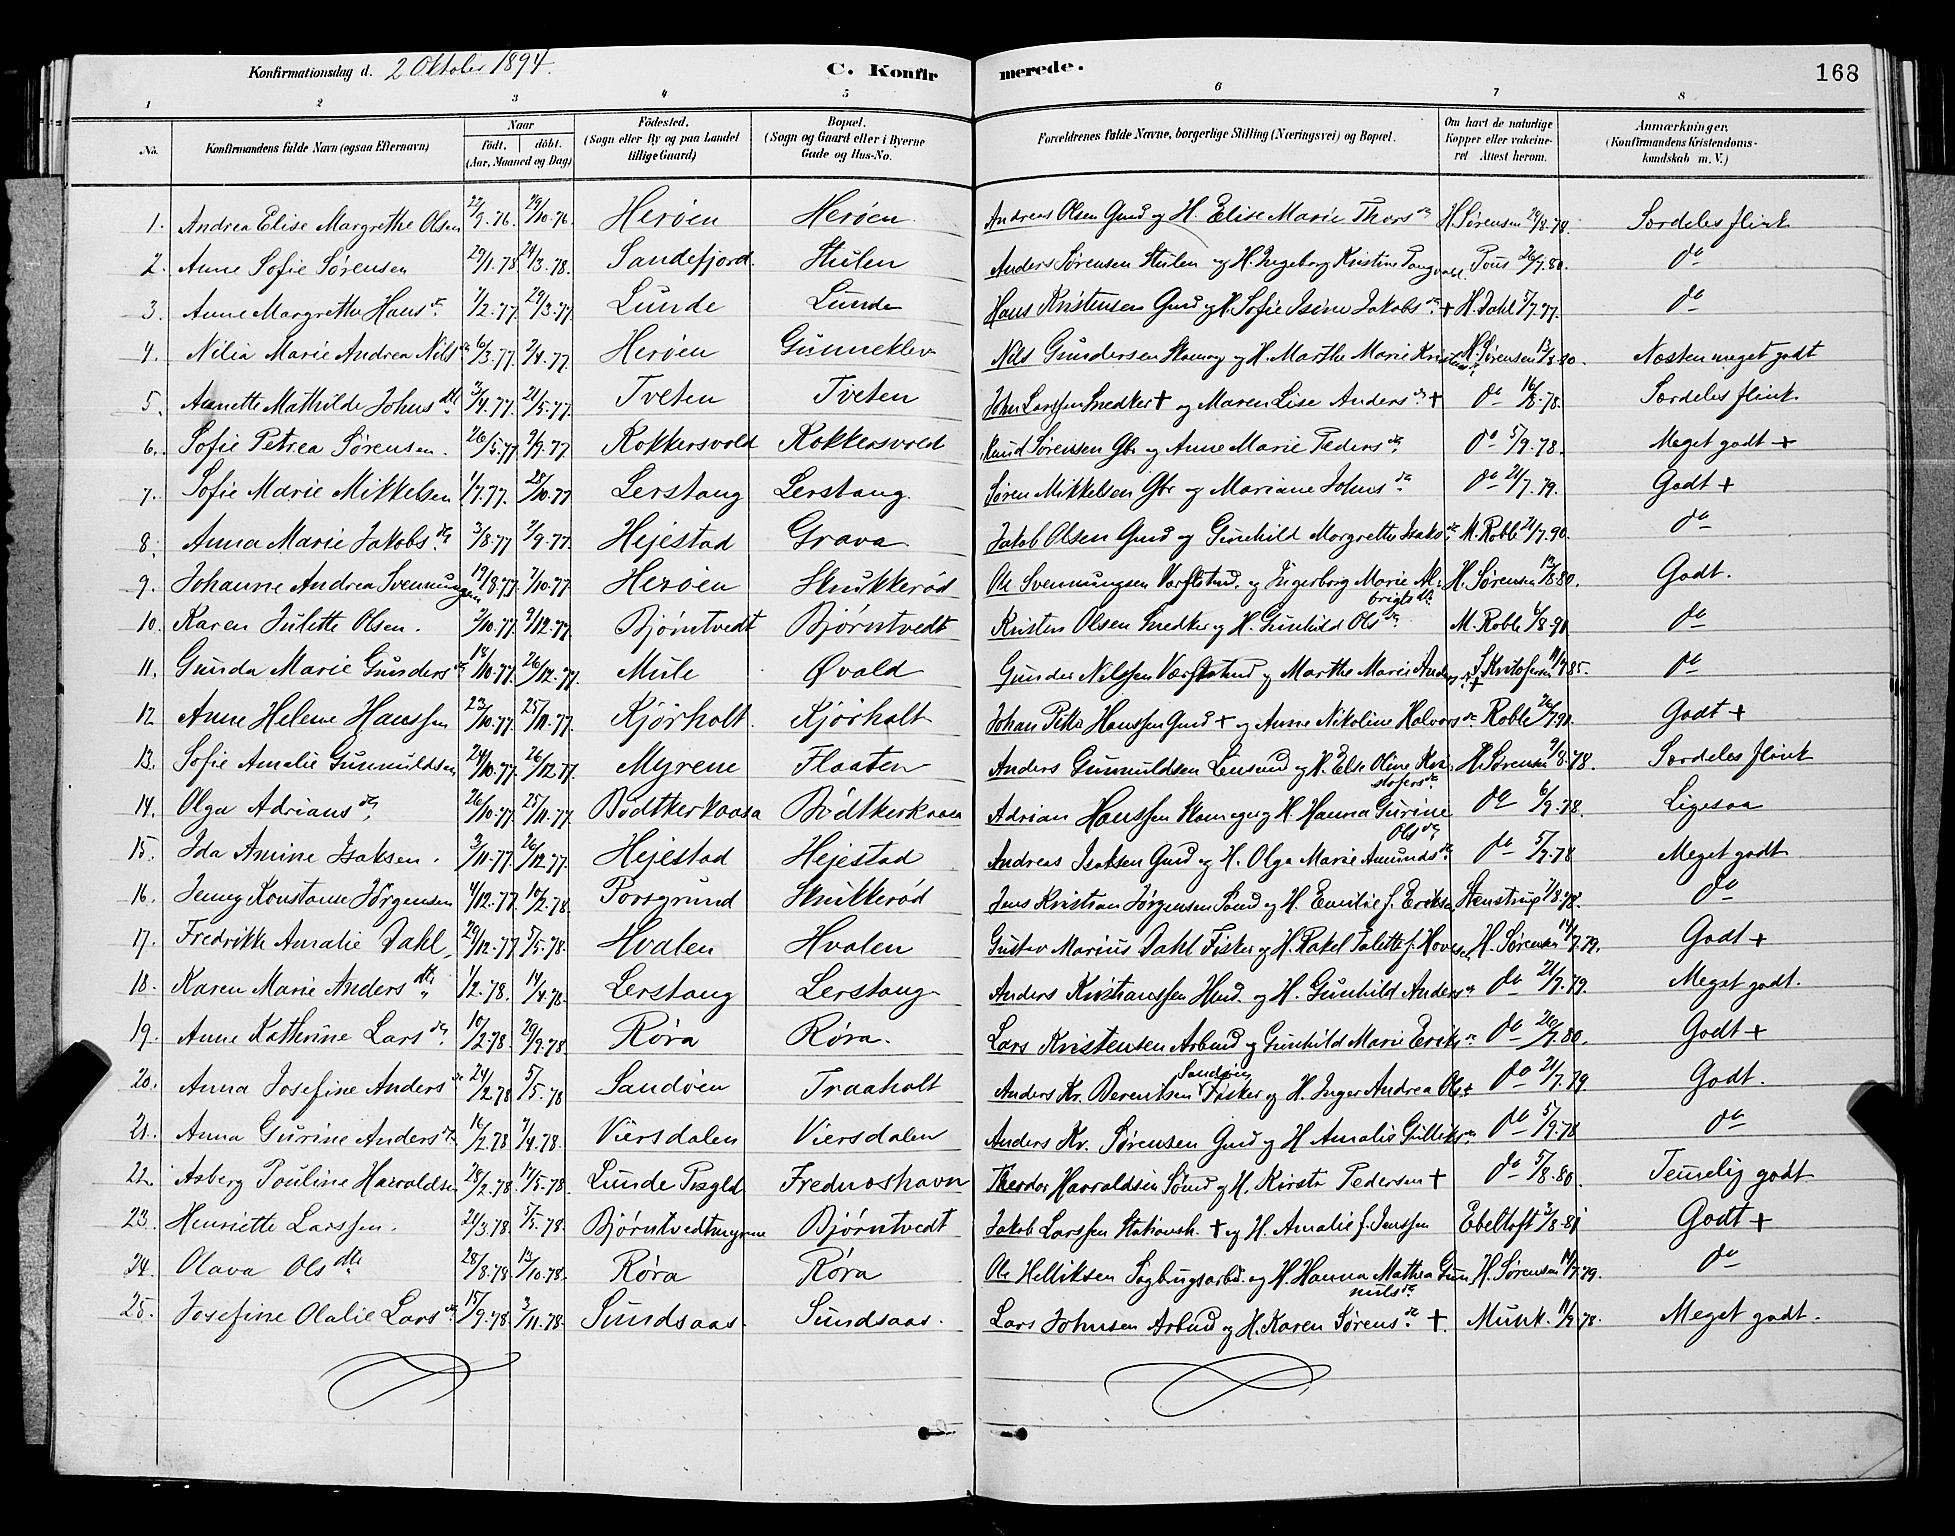 Konfirmationsdag d. 2 Oktober 1894. C. Konfirmerede. 168
1 2 3 4 5 6 7 8
No. Konfirmandens fulde Navn (ogsaa Efternavn) Naar Födt. döbt. (Aar, Maaned og Dag) Födested. (Sogn eller By og paa Landet tillige Gaard) Bopæl. (Sogn og Gaard eller i Byerne Gade og Hus-No. Forældrenes fulde Navne, borgerlige Stilling (Næringsvei) og Bopæl. Om havt de naturlige Kopper eller vakcineret Attest herom. Anmærkninger. (Konfirmandens Kristendomskundskab m. V.)
1. Andrea Elise Margrethe Olsen 29/10.76. Herøen Herøen Andreas Olsen Gmd og H. Elise Marie Thors H. Sørensen 29/8.78. Særdeles flink
2. Anne Sofie Sørensen 29/1.78 24/3.78. Sandefjord. Stulen Anders Sørensen Stulen og H. Ingeborg Kristine 26/7.80. do
3. Anne Margrethe Hans 7/2.77 29/3.77 Lunde Lunde Hans Kristensen Gmd og H. Sofie Isine Jakobs + H. Dahl 5/7.77. do
4. Nilia Marie Andrea Nils 6/3.77 2/4.77. Herøen Gunneklev Nils Gundersen og H. Marthe Marie H. Sørensen Næsten meget godt
5. Annette Mathilde Johns dtr 3/4.77 21/5.77. Tveten Tveten John Larssen Snedker + og Maren Lise Anders + do 16/8.78. Særdeles flink.
6. Sofie Petrea Sørensen. 26/5.77 9/9.77 Kokkersvold Kokkersvold Knud Sørensen Gbr og Anne Marie Peders do 5/9.78. Meget godt +
7. Sofie Marie Mikkelsen 1/7.77. 28/10.77 Lerstang Lerstang. Søren Mikkelsen Gbr og Mariane Johns do 21/7.79. Godt +
8. Anna Marie Jakobs 3/8.77 2/9.77. Hejestad Grava Jakob Olsen Gmd og Gunhild Margrethe Isaks M. Roble 21/7.90. do
9. Johanne Andrea Svennungsen 19/8.77 7/10.77 Herøen Skrukkerød Ole Svennungsen og Ingerborg Marie Albrigts H. Sørensen 13/8.80. Godt.
10. Karen Julette Olsen. 7/10.77 9/12.77 Bjørntvedt Bjørntvedt Kristen Olsen Snedker og H. Gunhild Ols M. Roble 6/8.91 do
11. Gunda Marie Gunders 18/10.77 26/12.77. Mule Øvald Gunder Nilssen og Marthe Marie Anders + S. Kristofersen 11/7.85. do
12 Anne Helene Hanssen 23/10.77 25/11.77. Kjørholt. Kjørholt Johan Petter Hanssen Gmd + og Anne Nikoline Halvors Roble Godt +
13. Sofie Amalie Gunnuldsen 24/10.77. 26/12.77. Myrene Flaaten Anders Gunnuldsen og H. Else Oline Kristofers H. Sørensen 9/8.78. Særdeles flink
14. Olga Adrians 26/10.77. 25/11.77. Bødtkerkaasa Bødtkerkaasa Adrian Hanssen og H. Hanna Gurine Ols do 6/9.78. Ligesaa
15. Ida Amine Isaksen. 3/11.77. 26/12.77. Hejestad Hejestad Andreas Isaksen Gmd og H. Olga Marie Amunds do 5/7.78 Meget godt
16. Jenny Konstanse Jørgensen 4/12.77. 10/2.78. Porsgrund Skrukkerød Jens Kristian Jørgensen og H. Emilie f. Eriksen Stenstrup 7/8.78. do
17. Fredrikke Amalie Dahl 29/12.77 5/5.78. Hvalen Hvalen Gustav Marius Dahl Fisker og H. Rakel Talette f. H. Sørensen 14/7.79. Godt +
18. Karen Marie Anders dtr 1/2.78. 14/4.78. Lerstang Lerstang Anders Kristianssen Hmd. og H. Gunhild Anders do 21/7.79. Meget godt.
19. Anne Kathrine Lars 10/2.78 29/9.78 Røra Røra. Lars Kristensen Arbmd og Gunhild Marie Eriks do 20/7.80. Godt +
20. Anna Josefine Anders 24/2.78 5/5.78 Sandøen Traaholt Anders Kr. Berentsen Sandøen Fisker og H. Inger Andrea Ols do 21/7.79. Godt.
21. Anna Gurine Anders 16/2.78 7/4.78. Viersdalen Viersdalen Anders Kr. Sørensen Gmd og H Amalie Gulliks do 5/9.78 do
22. Asberg Pouline Harroldsen 28/2.78. 14/5.78. Lunde Fredrikshavn Theodor Harroldsen Sømd og H. Kirste Pedersen + do 5/8.80. Temelig godt
23. Henriette Larssen. 21/3.78. 5/5.78. Bjørntvedtmyrene Bjørntvedt Jakob Larssen + og H. Amalie f. Jenssen Ebeltoft 3/8.81 Godt +
24. Olava Ols dtr 28/8.78 13/10.78. Røra Røra Ole Helliksen Sagbrugsarbd. og H. Hanna Mathea Gunnuls H. Sørensen 14/7.79. do
25. Josefine Olalie Lars 15/9.78. 3/11.78. Sundsaas. Sundsaas. Lars Johnsen Arbmd og H. Karen Sørens +. Munk. 11/9.78. Meget godt.